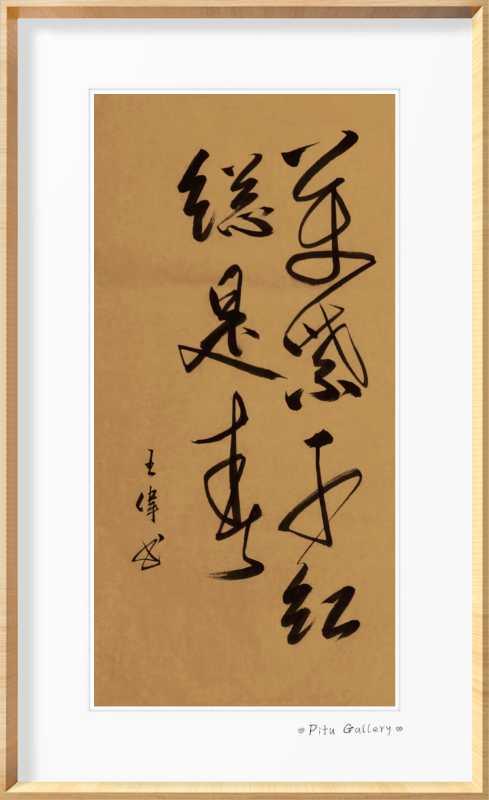 萬紫千紅
總是春
王偉书
Pitu Gallery